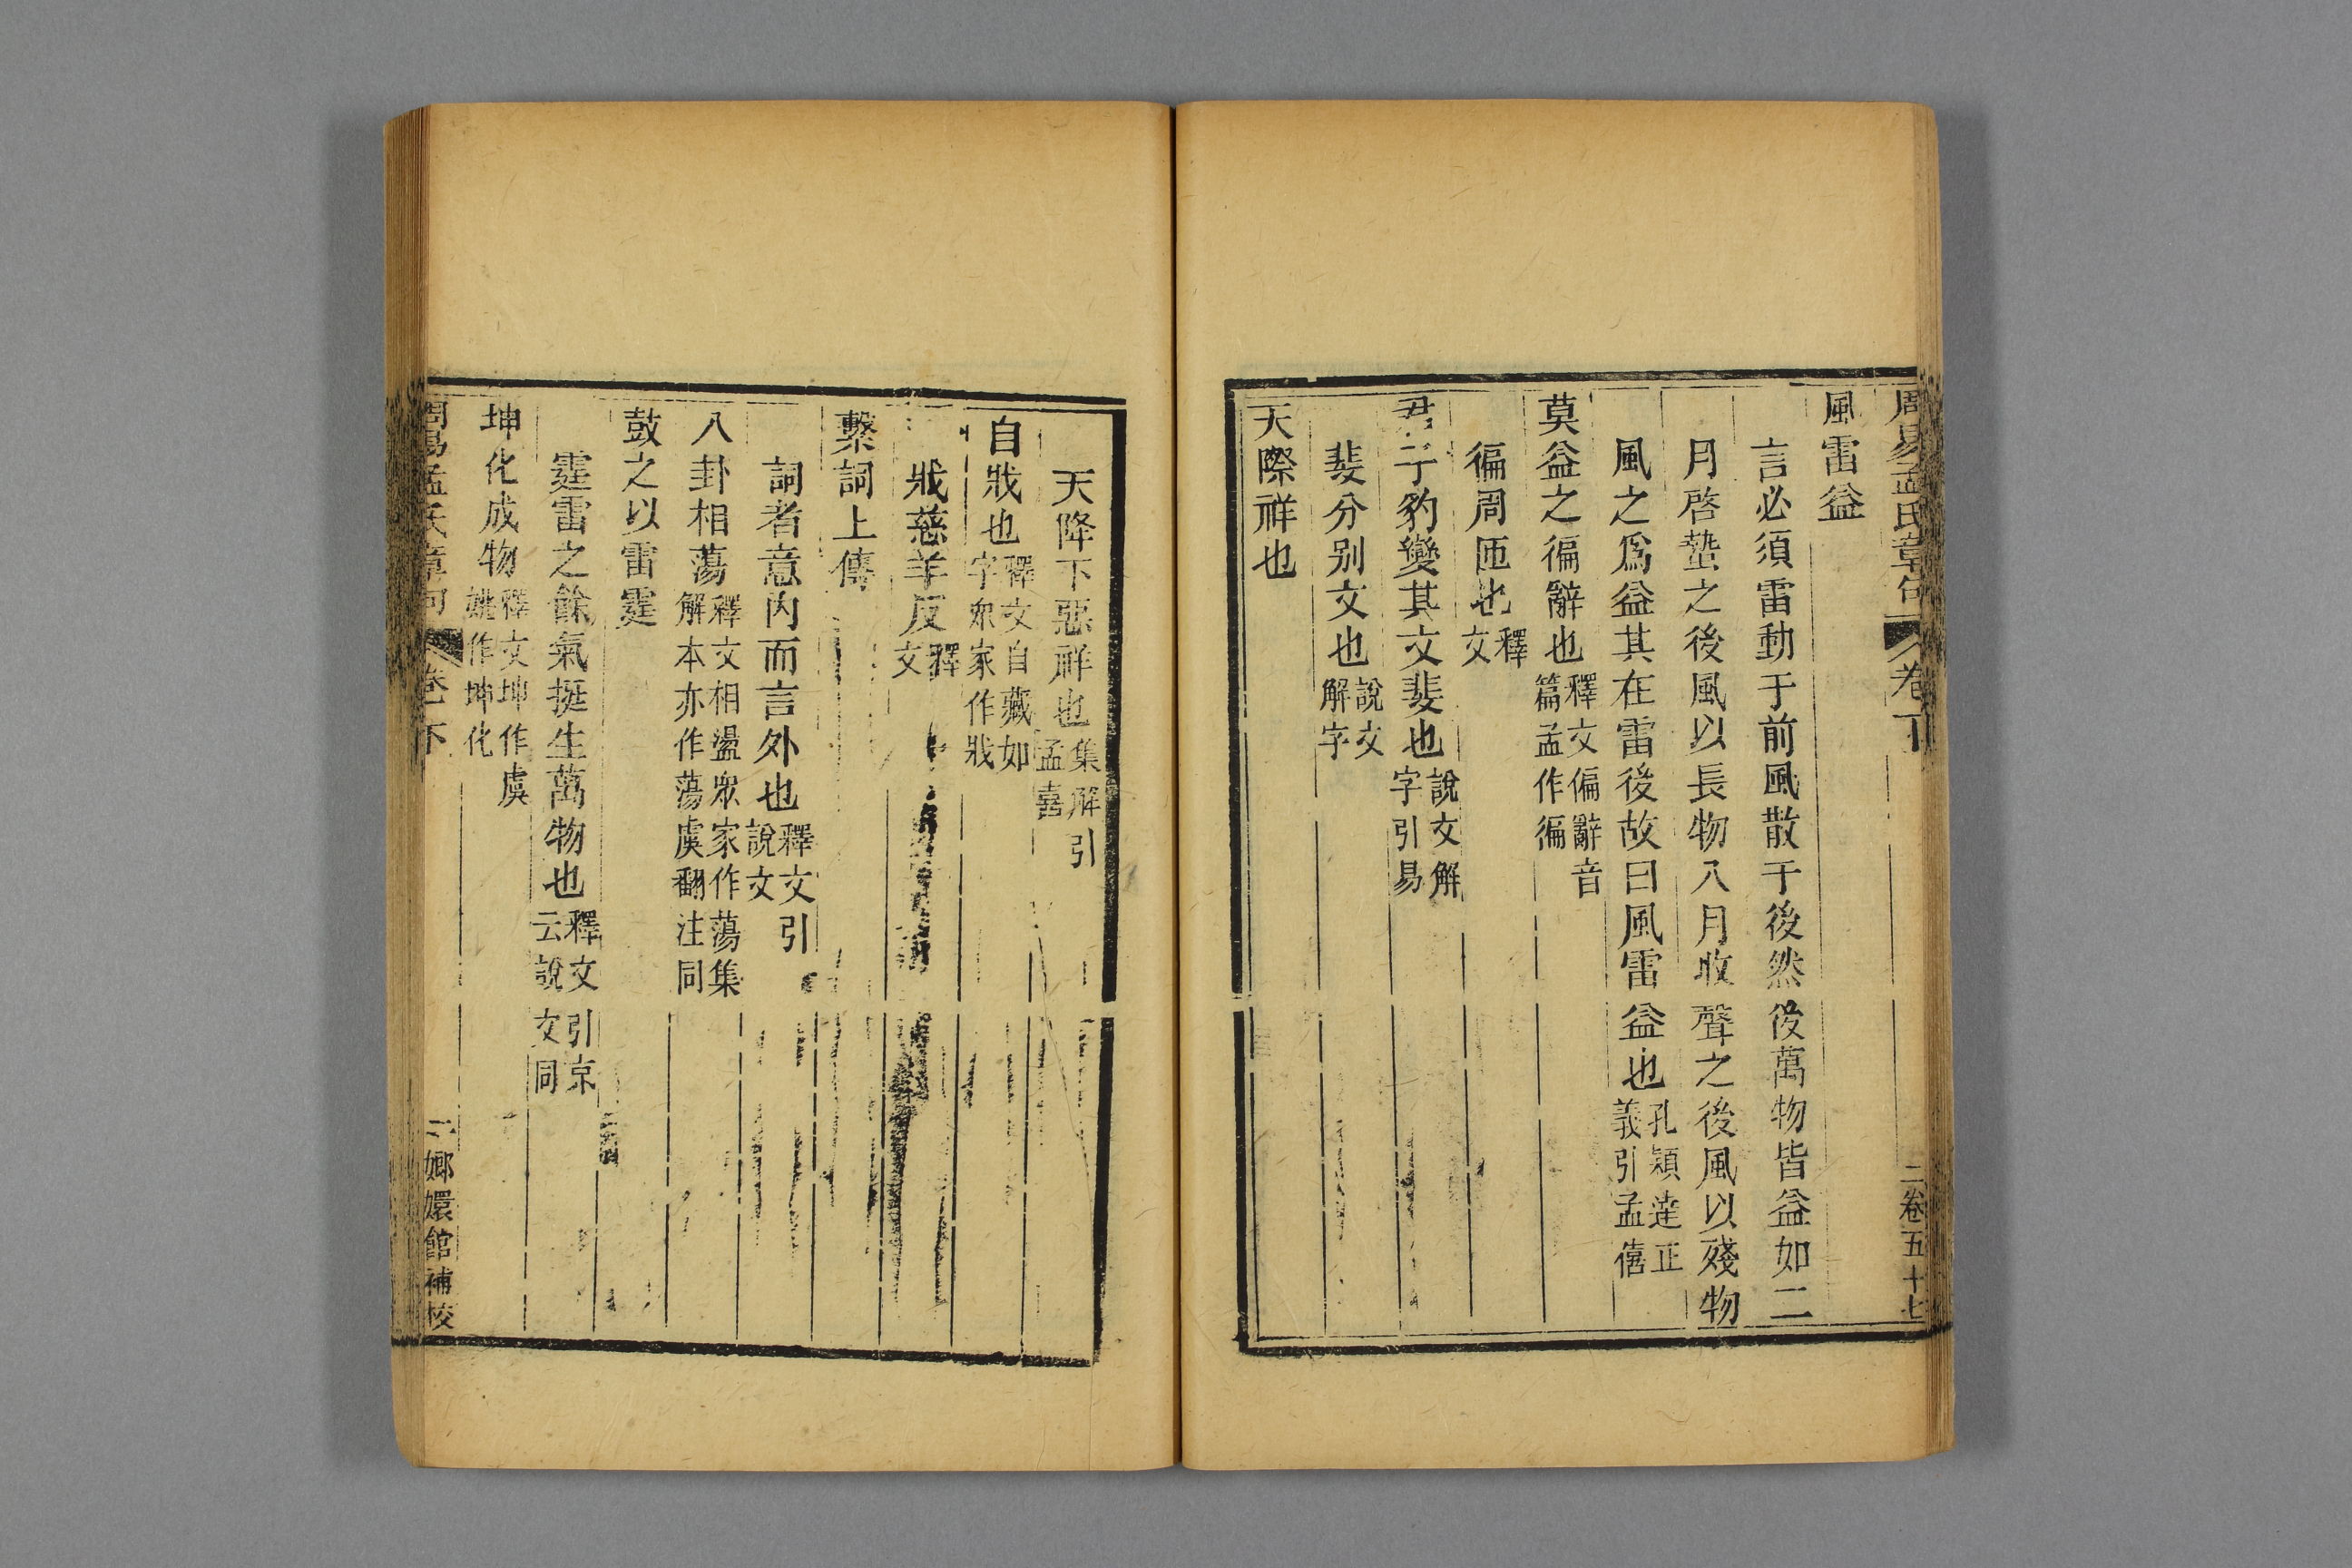 周易孟氏章句 卷下 二 卷五十七
風雷益
言必須雷動于前風散于後然後萬物皆益如二
月啓蟄之後風以長物八月收聲之後風以殘物
風之爲益其在雷後故曰風雷益也孔穎達正義引孟僖
莫益之徧辭也釋文偏辭音篇孟作徧
徧周匝也釋文
君子豹變其文斐也說文解字引易
斐分别文也說文解字
天際祥也
天降下惡祥也集解引孟喜
自戕也釋文自藏如字眾家作戕
戕慈羊反釋文
繫詞上傳
詞者意内而言外也釋文引說文
八卦相蕩釋文相盪眾家作蕩集解本亦作蕩虞翻注同
鼓之以雷霆
霆雷之餘氣挺生萬物也釋文引京云說文同
坤化成物釋文坤作虞姚作坤化
周易孟氏章句 卷下 二 嫏嬛館補校